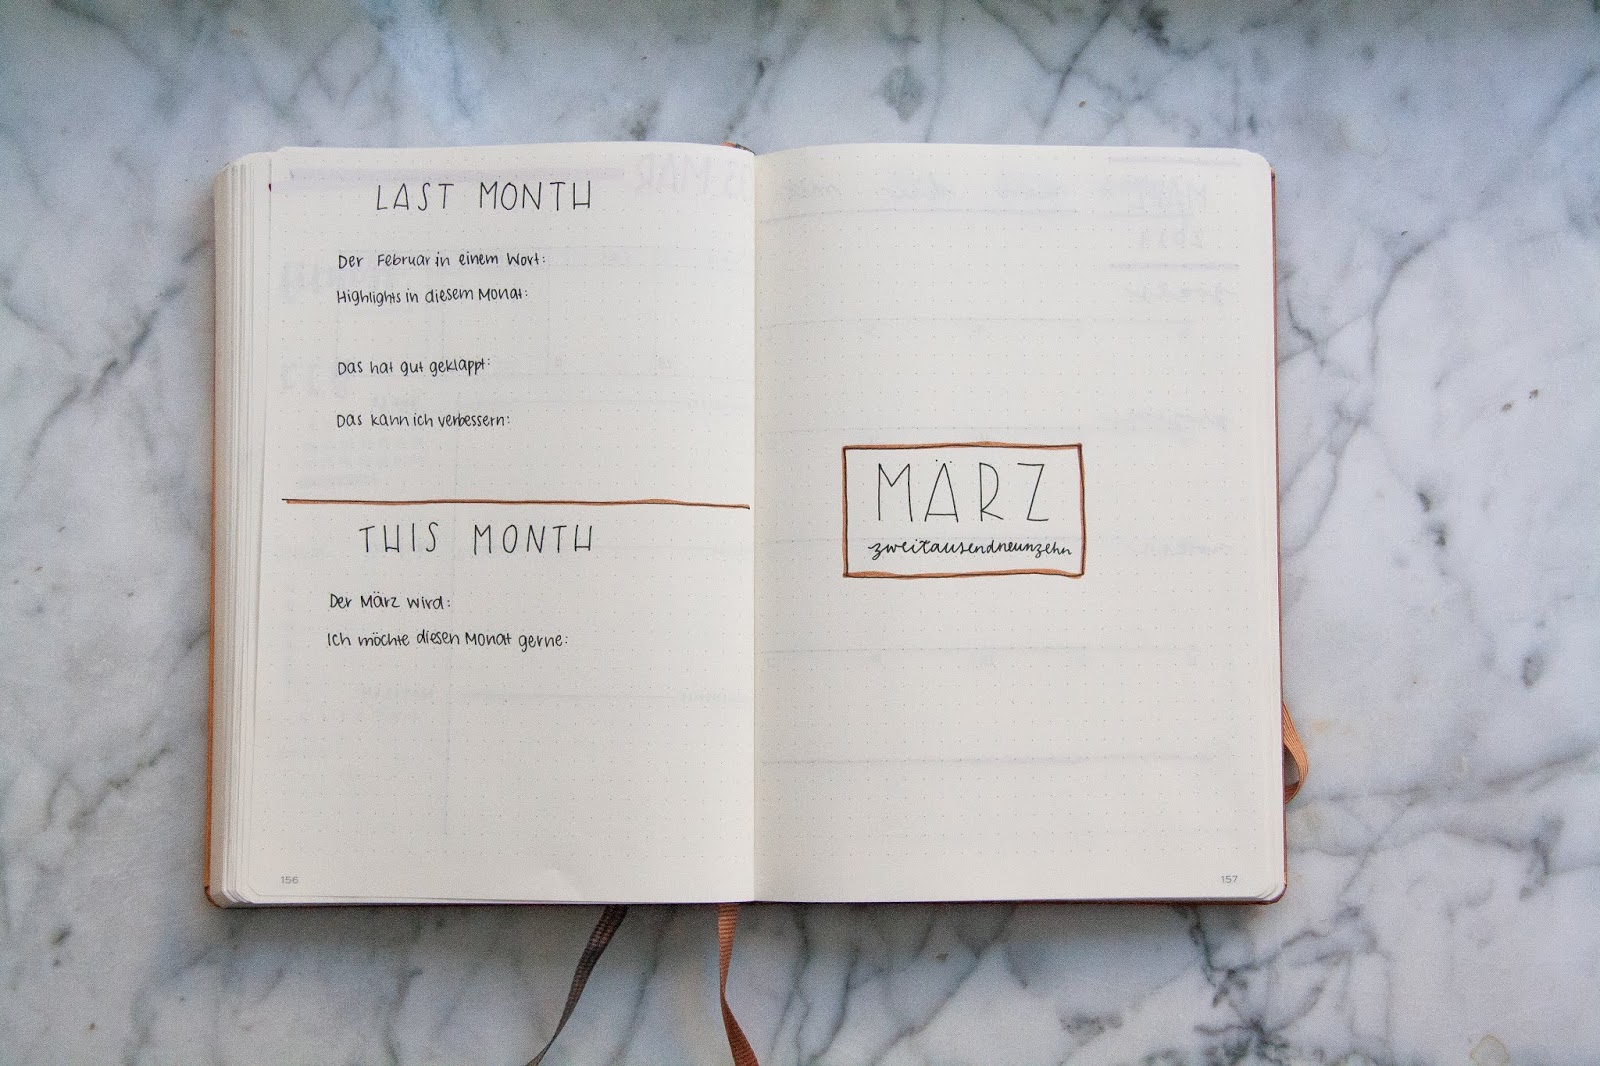 LAST MONTH
Der Februar in einem Wort:
Highlights in diesem Monat:
Das hat gut geklappt:
Das kann ich verbessern:
THIS MONTH
Der März wird:
Ich möchte diesen Monat gerne:
156
MÄRZ
zweitausendneunzehn
157